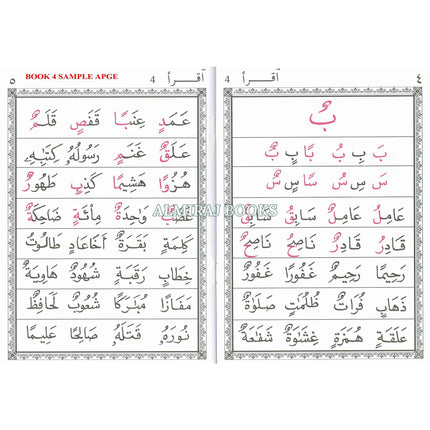 ٤ أَقْرَأْ 4
بٌ
بَ بِ بُ بًا بٍ بٌ
سَ سِ سُ سًا سٍ سٌ
عَامِلُ عَامِلٌ سَابِقُ سَابِقٌ
قَادِرُ قَادِرٌ نَاصِحُ نَاصِحٌ
رَحِيمًا رَحِيمٌ غَفُورًا غَفُورٌ
ذَهَابٍ فُرَاتٌ ظُلُمَٰتٍ صَلَوٰةٌ
عَلَقَةٍ هُمَزَةٍ غِشَٰوَةٌ شَفَٰعَةٌ
أَقْرَأْ 4 BOOK 4 SAMPLE APGE ٥
عَمَدٍ عِنَبًا قَفَصٍ قَلَمٌ
عَلَقٍ غَنَمٍ رَسُولُهُ كِتَٰبِهِ
هُزُوًا هَشِيمًا كَذِبٍ طَهُورٌ
غَضَبٌ وَٰحِدَةٌ مِائَةٍ ضَاحِكَةٌ
ALMIRAJ BOOKS
كَلِمَةٍ بَقَرَةٌ أَخَاعَادٍ طَالُوتُ
خِطَابٍ رَقَبَةٍ شُهُودٌ هَاوِيَةٌ
مَفَازًا مُبَٰرَكًا شُعُوبٌ لَحَافِظٌ
نُورَهُ قَتَلَهُ صَالِحًا عَلِيمًا